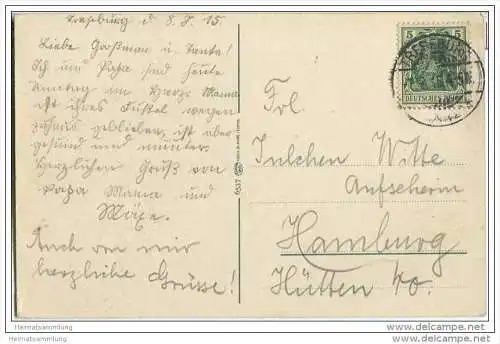 d 8. 8. 15.
Liebe Großmam u. Tante!
Ich und Papa sind heute
Sonntag im Harz. Mama
ist ihres wegen
zuhaus geblieben, ist aber
gesund und munter.
Herzlichen Gruß von
Papa Mama und
Mäxe.
Auch von mir
herzliche Grüsse!
6537
5 5
DEUTSCHES REICH
Frl.
Julchen Witte
Aufseherin
Hamburg
Hütten 40.
Heimatsammlung
Heimatsammlung
delcampe.net